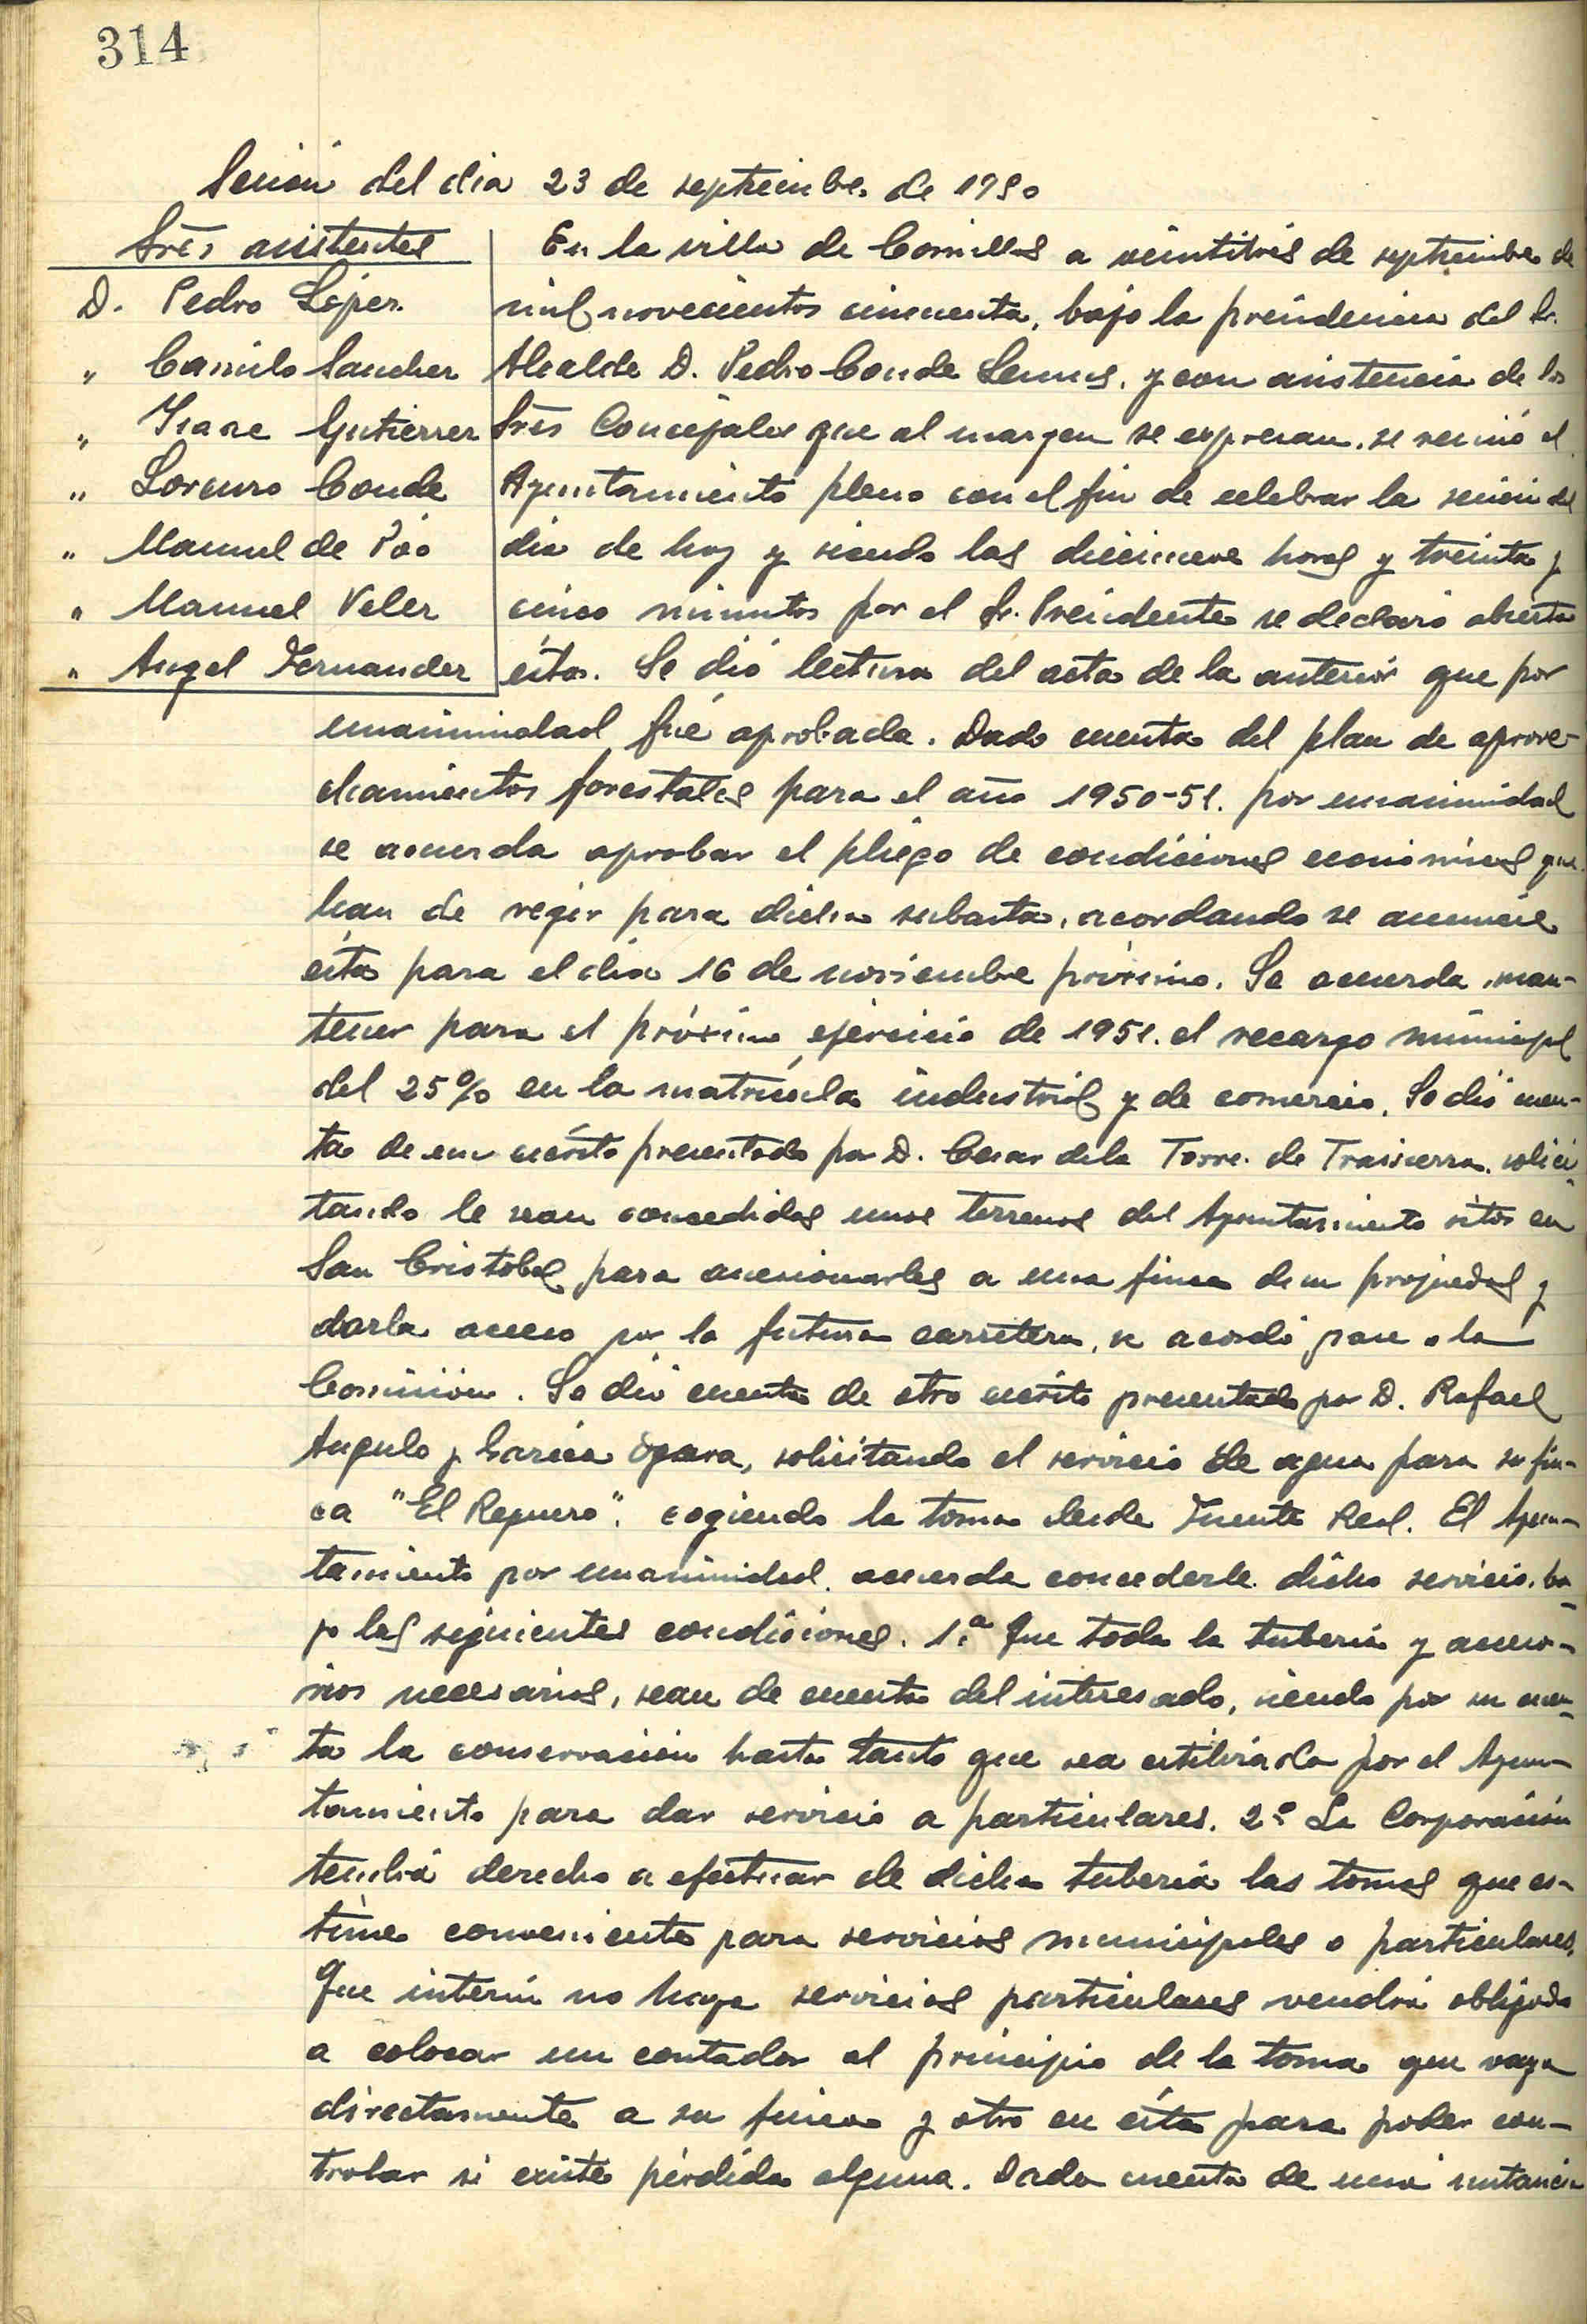 314
Sesión del dia 23 de septiembre de 1950
Sres asistentes
D. Pedro López.
" Camilo Sanchez
" Isaac Gutierrez
" Lorenzo Conde
" Manuel de Pío
" Manuel Velez
" Angel Fernandez
En la villa de Comillas a veintitrés de septiembre de
mil novecientos cincuenta, bajo la presidencia del Sr.
Alcalde D. Pedro Conde Lemus, y con asistencia de los
Sres Concejales que al margen se expresan, se reunió el
Ayuntamiento pleno con el fin de celebrar la sesión del
dia de hoy y siendo las diecinueve horas y treinta y
cinco minutos por el Sr. Presidente se declaró abierta
ésta. Se dió lectura del acta de la anterior que por
unanimidad fué aprobada. Dado cuenta del plan de aprove-
chamientos forestales para el año 1950-51. por unanimidad
se acuerda aprobar el pliego de condiciones económicas que
han de regir para dicha subasta, acordando se anuncie
ésta para el dia 16 de noviembre próximo. Se acuerda man-
tener para el próximo ejercicio de 1951. el recargo municipal
del 25% en la matrícula industrial y de comercio. Se dió cuen-
ta de un escrito presentado por D. Cesar de la Torre de Trassierra, solici-
tando le sean concedidos unos terrenos del Ayuntamiento sitos en
San Cristobal para anexionarles a una finca de su propiedad y
darla acceso por la futura carretera, se acordó pase a la
Comisión. Se dió cuenta de otro escrito presentado por D. Rafael
Angulo y García Ogara, solicitando el servicio de agua para su fin-
ca "El Reguero". cogiendo la toma desde Fuente Real. El Ayun-
tamiento por unanimidad acuerda concederle dicho servicio, ba-
jo las siguientes condiciones. 1.ª Que toda la tubería y acceso-
rios necesarios, sean de cuenta del interesado, siendo por su cuen-
ta la conservación hasta tanto que sea utilizada por el Ayun-
tamiento para dar servicio a particulares. 2ª La Corporación
tendrá derecho a efectuar de dicha tubería las tomas que es-
time conveniente para servicios municipales o particulares.
Que interín no haya servicios particulares vendrá obligado
a colocar un contador al principio de la toma que vaya
directamente a su finca y otro en ésta para poder con-
trolar si existe pérdida alguna. Dada cuenta de una instancia